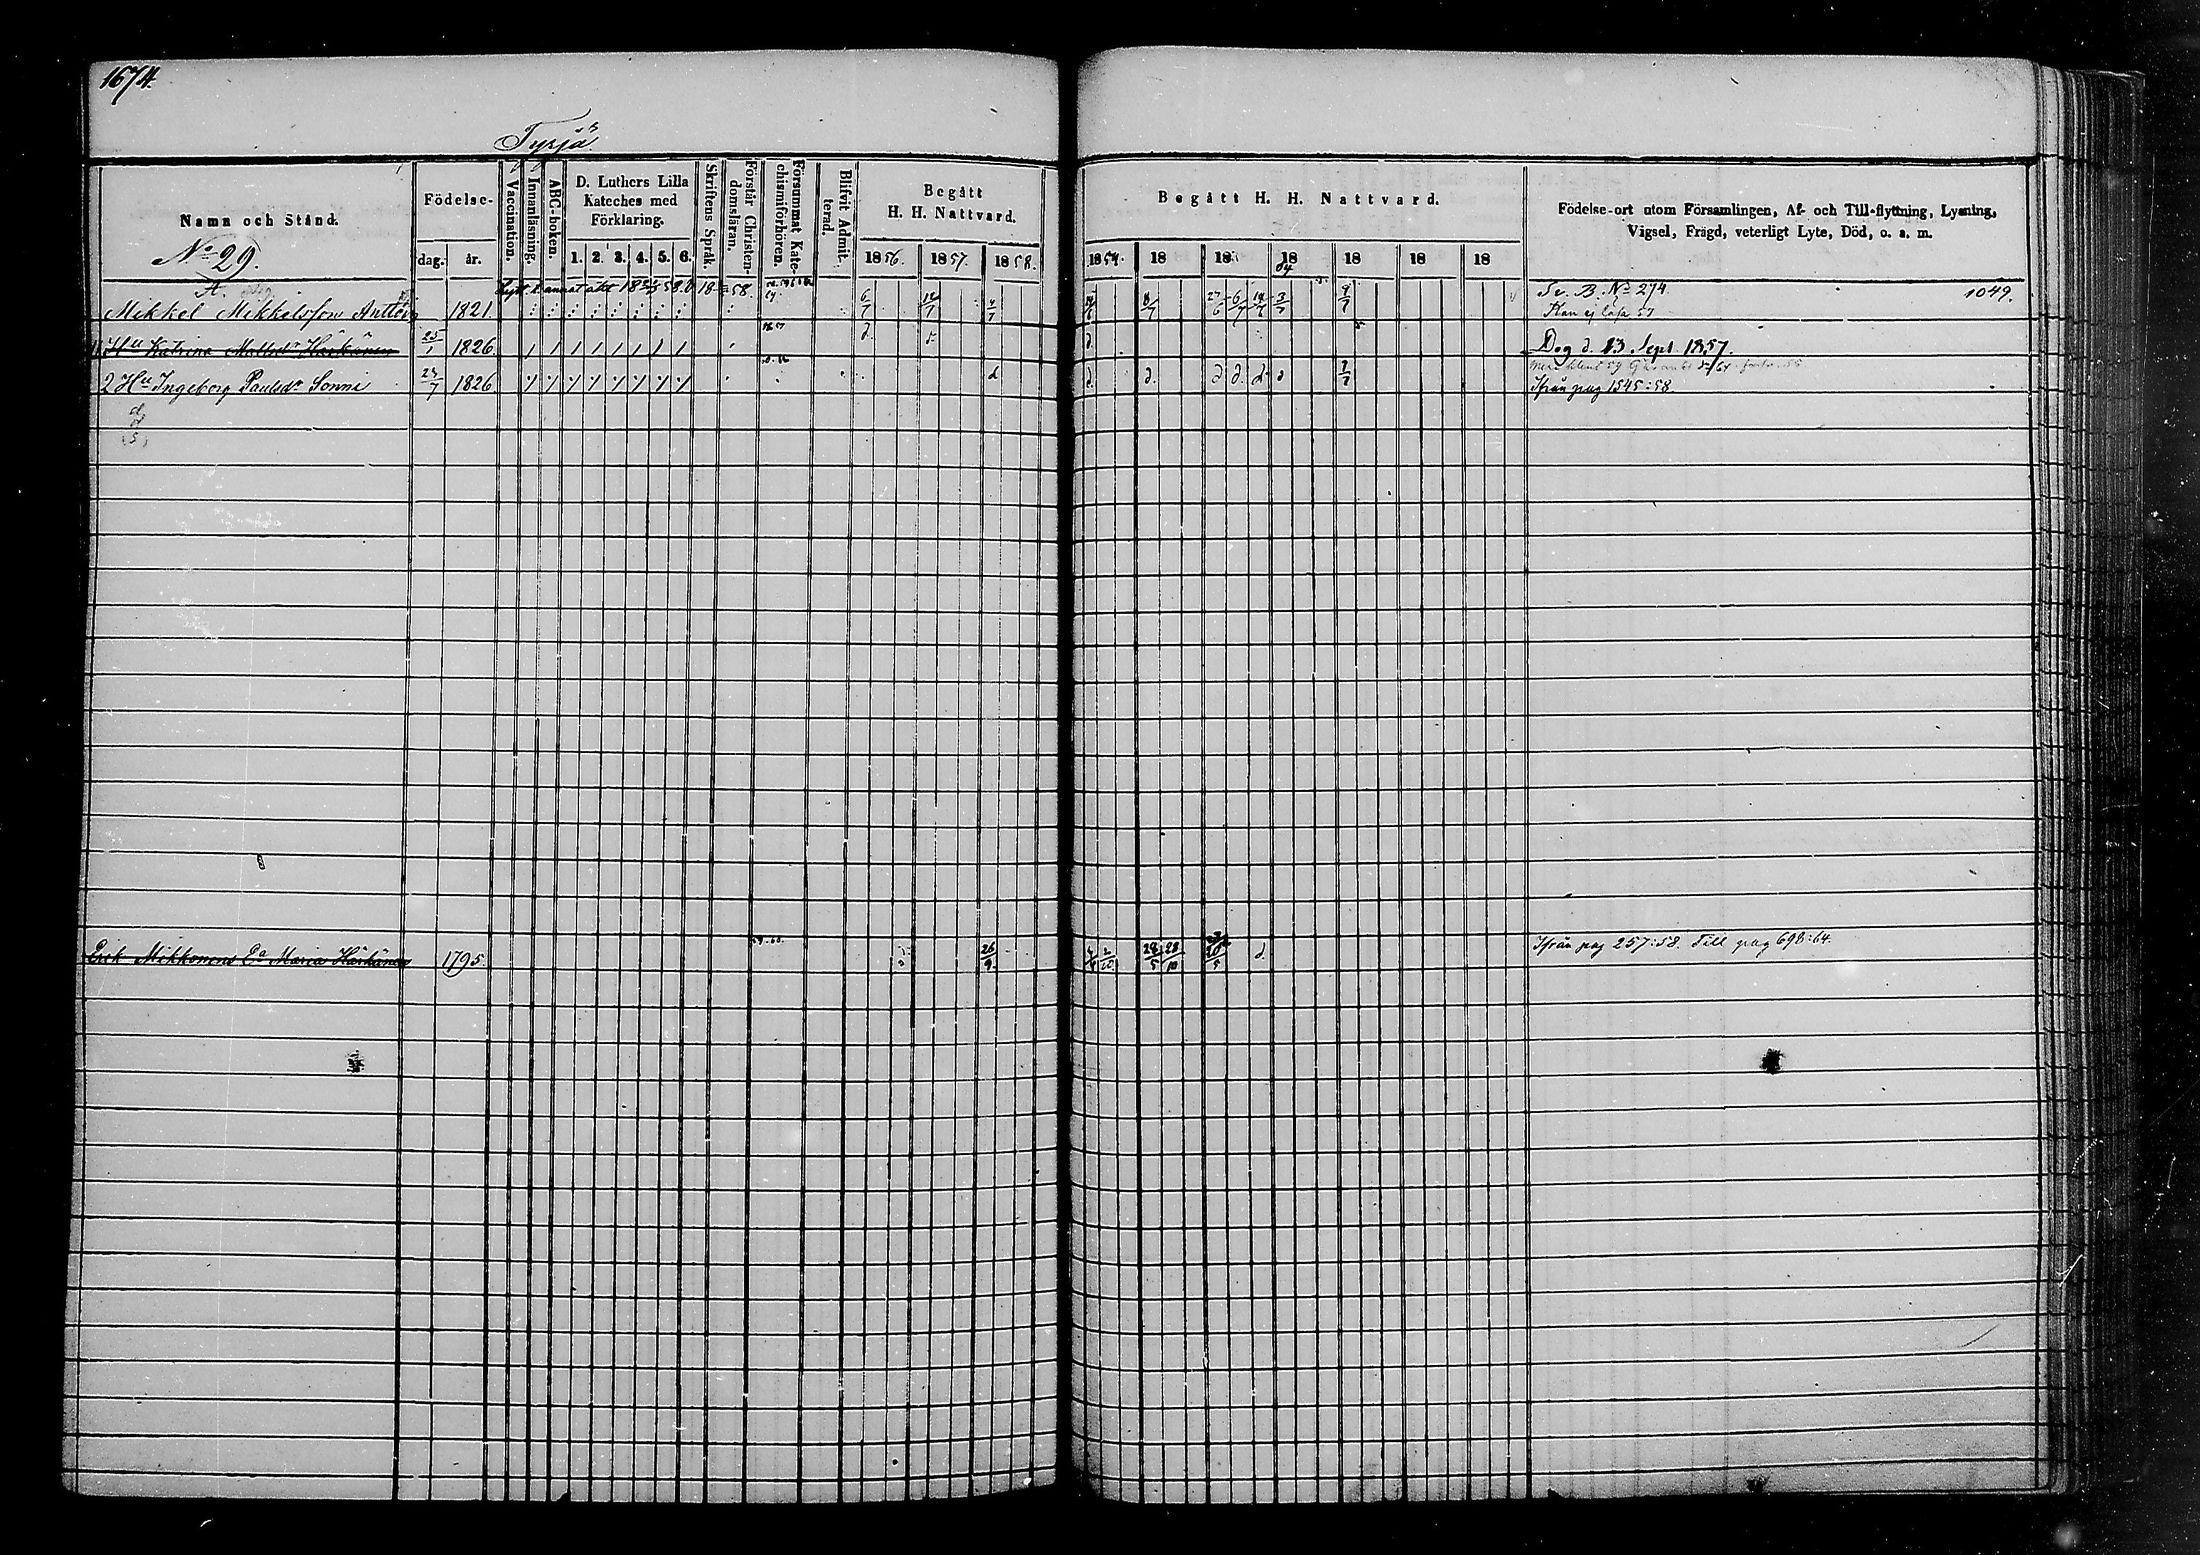 1674.
Tyrjä
Namn och Stånd.
Födelse-
dag. år.
Vaccination.
Innanläsning.
ABC-boken.
D. Luthers Lilla Kateches med Förklaring.
1. 2. 3. 4. 5. 6.
Skriftens Språk.
Förstår Christendomsläran.
Försummat Katechismiförhören.
Blifvit Admitterad.
Begått H. H. Nattvard.
1856. 1857. 1858.
Begått H. H. Nattvard.
1859. 18 18 18 18 18 18
Födelse-ort utom Församlingen, Af- och Till-flyttning, Lysning,
Vigsel, Frägd, veterligt Lyte, Död, o. s. m.
No 29.
Mikkel Mikkelsson 1821. 6/7 8/7 Sv. B. No 274 1049.
Kan ej läsa 57
Hu Katrina Härkänen 25/1 1826. Dog d. 13 Sept. 1857.
2 Hu Ingeborg Paulsdr Sonni 23/7 1826 d. d. d. d
Ifrån pag 1545:58
Erik Mikkonens Ea Maria Härkänen 1795 26/9 28/5 28/10 d. Ifrån pag 257:58. Till pag 698:64.